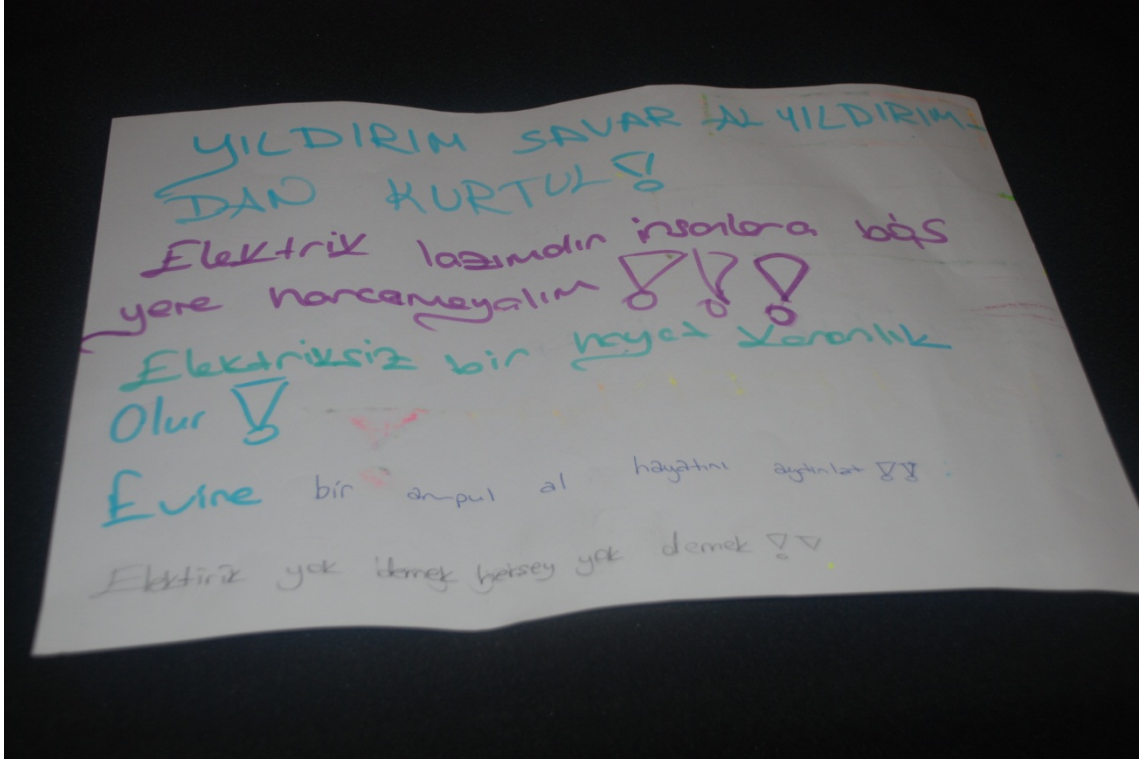 YILDIRIM SAVAR AL YILDIRIM-
DAN KURTUL!
Elektrik lazımdır insanlara boş
yere harcamayalım!!!
Elektriksiz bir hayat karanlık
Olur!
Evine bir ampul al hayatını aydınlat!!
Elektirik yok demek herşey yok demek!!